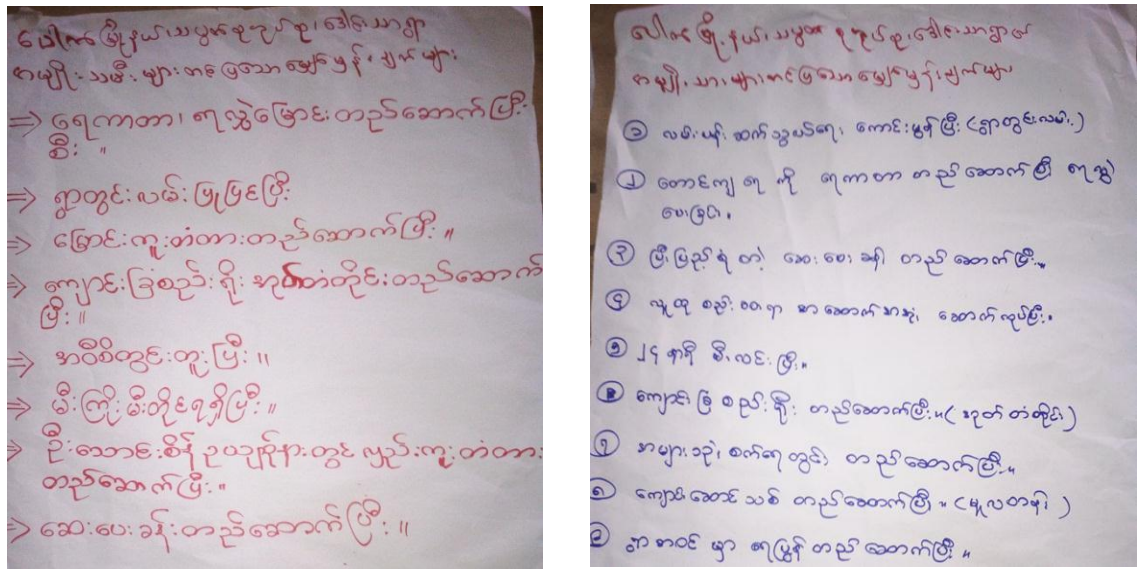 ပေါက်မြို့နယ်၊ သပွတ်စုအုပ်စု၊ ဒေါင်းသာရွာ
အမျိုးသမီးများတင်ပြသော မျှော်မှန်းချက်များ
⇒ ရေကာတာ၊ ရေလွှဲမြောင်းတည်ဆောက်ပြီး
စီး။
⇒ ရွာတွင်းလမ်းပြုပြင်ပြီး
⇒ မြောင်းကူးတံတားတည်ဆောက်ပြီး။
⇒ ကျောင်းခြံစည်းရိုး အုတ်တံတိုင်းတည်ဆောက်
ပြီး။
⇒ အဝီစိတွင်းတူးပြီး။
⇒ မီးကြိုးမီးတိုင်ရရှိပြီး။
⇒ ဦးသောင်းစိန် ဥယျာဉ်နားတွင် လှည်းကူးတံတား
တည်ဆောက်ပြီး။
⇒ ဆေးပေးခန်းတည်ဆောက်ပြီး။
ပေါက်မြို့နယ်၊ သပွတ်စုအုပ်စု၊ ဒေါင်းသာရွာ
အမျိုးသားများတင်ပြသော မျှော်မှန်းချက်များ
၁ လမ်းပန်းဆက်သွယ်ရေး ကောင်းမွန်ပြီး (ရွာတွင်းလမ်း)
၂ တောင်ကျရေ ကို ရေကာတာ တည်ဆောက်ပြီး ရေလွှဲ
ပေးခြင်း။
၃ ပြီးပြည့်စုံ တဲ့ ဆေးပေးခန်း တည်ဆောက်ပြီး။
၄ လူထုစည်းဝေးရာ အဆောက်အအုံ ဆောက်လုပ်ပြီး။
၅ ၂၄ နာရီ မီးလင်းပြီး။
၆ ကျောင်းခြံစည်းရိုး တည်ဆောက်ပြီး။ (အုတ်တံတိုင်း)
၇ အများသုံးစက်ရေတွင်း တည်ဆောက်ပြီး။
၈ ကျောင်းဆောင်သစ် တည်ဆောက်ပြီး။ (မူလတန်း)
၉ ရွာအဝင်မှာ ရေပြွန်တည်ဆောက်ပြီး။